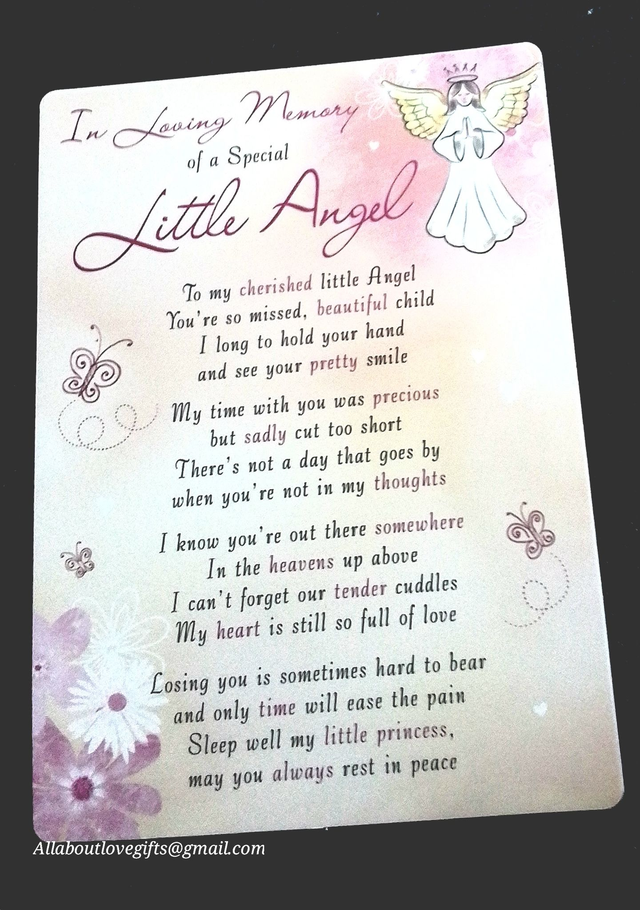 In Loving Memory
of a Special
Little Angel
To my cherished little Angel
You're so missed, beautiful child
I long to hold your hand
and see your pretty smile
My time with you was precious
but sadly cut too short
There's not a day that goes by
when you're not in my thoughts
I know you're out there somewhere
In the heavens up above
I can't forget our tender cuddles
My heart is still so full of love
Losing you is sometimes hard to bear
and only time will ease the pain
Sleep well my little princess,
may you always rest in peace
Allaboutlovegifts@gmail.com